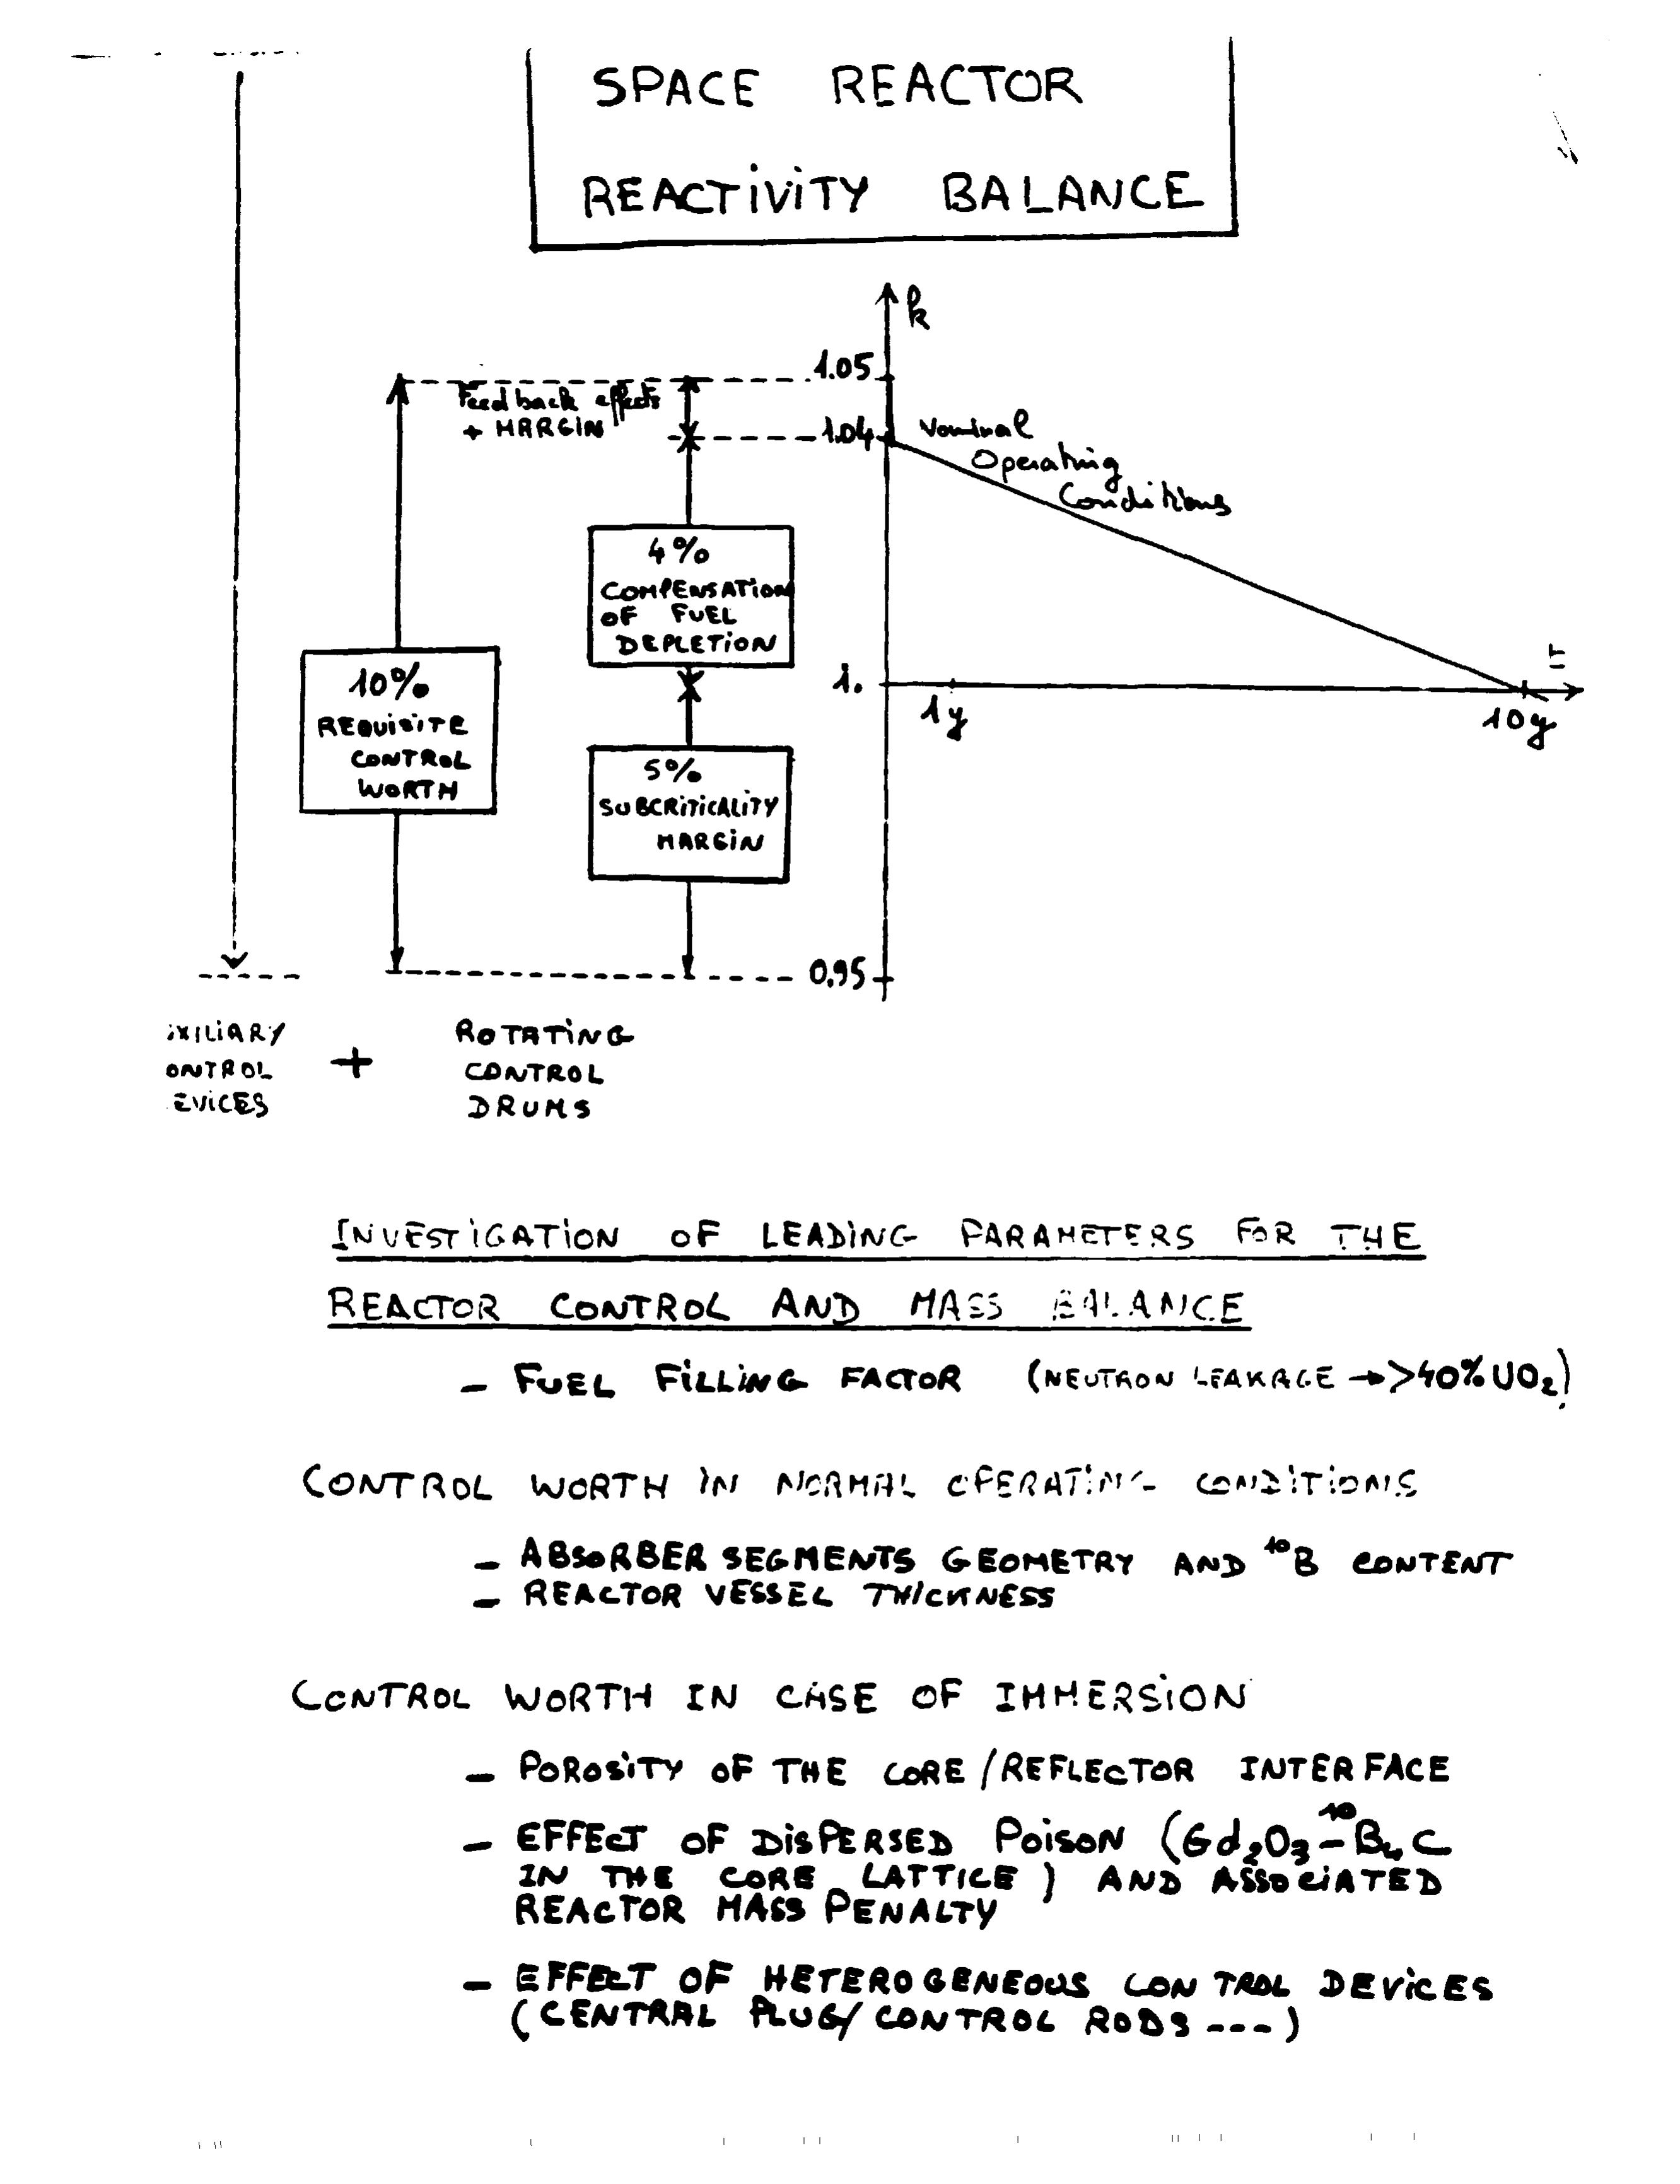 SPACE REACTOR
REACTIVITY BALANCE
k
1.05
Feedback effects
+ MARGIN
1.04
Nominal
Operating
Conditions
4%
COMPENSATION
OF FUEL
DEPLETION
10%
REQUISITE
CONTROL
WORTH
1.
1y
10y
t
5%
SUBCRITICALITY
MARGIN
0.95
UXILIARY
ONTROL
EVICES
+
ROTATING
CONTROL
DRUMS
INVESTIGATION OF LEADING PARAMETERS FOR THE
REACTOR CONTROL AND MASS BALANCE
- FUEL FILLING FACTOR (NEUTRON LEAKAGE → >40% UO₂)
CONTROL WORTH IN NORMAL OPERATING CONDITIONS
- ABSORBER SEGMENTS GEOMETRY AND ¹⁰B CONTENT
- REACTOR VESSEL THICKNESS
CONTROL WORTH IN CASE OF IMMERSION
- POROSITY OF THE CORE/REFLECTOR INTERFACE
- EFFECT OF DISPERSED POISON (Gd₂O₃ - ¹⁰B₄C
IN THE CORE LATTICE) AND ASSOCIATED
REACTOR MASS PENALTY
- EFFECT OF HETEROGENEOUS CONTROL DEVICES
(CENTRAL PLUG/CONTROL RODS ---)